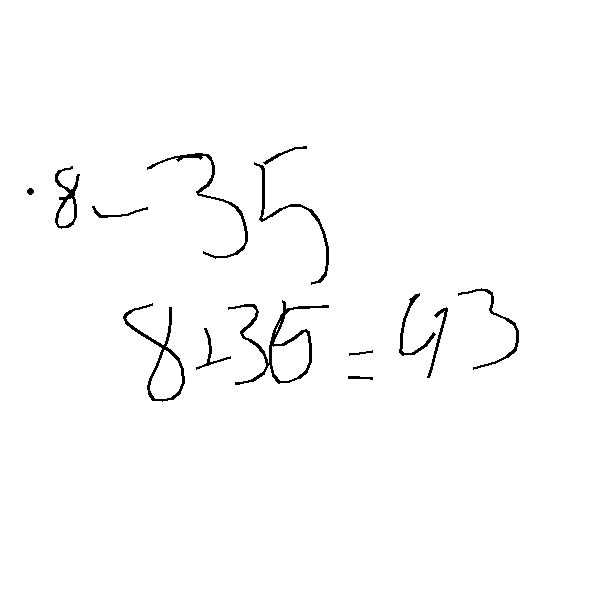 .8-35
8+35=43